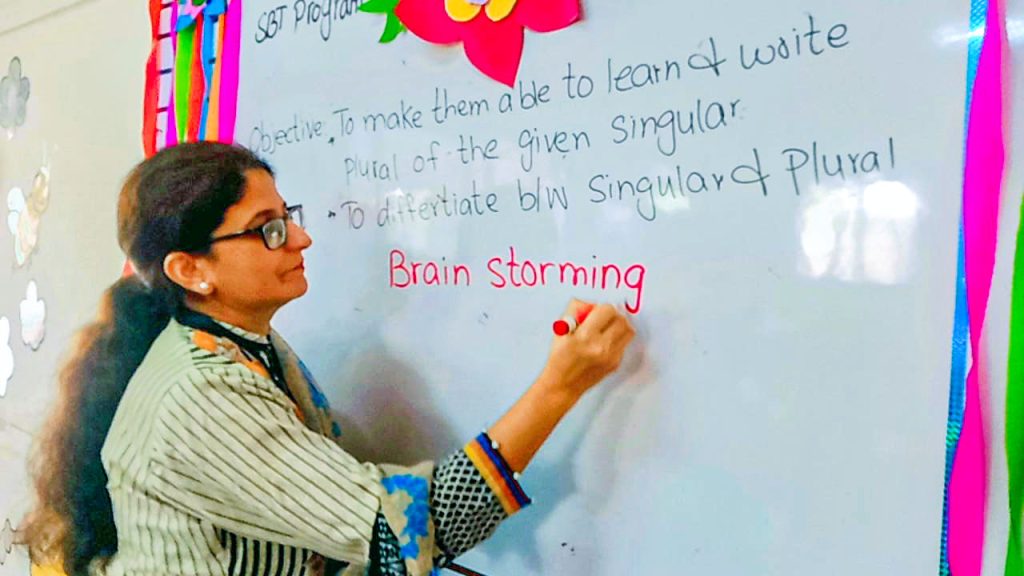 SBT Program
Objective: To make them able to learn & write
Plural of the given singular.
• To differtiate b/w Singular & Plural
Brain storming